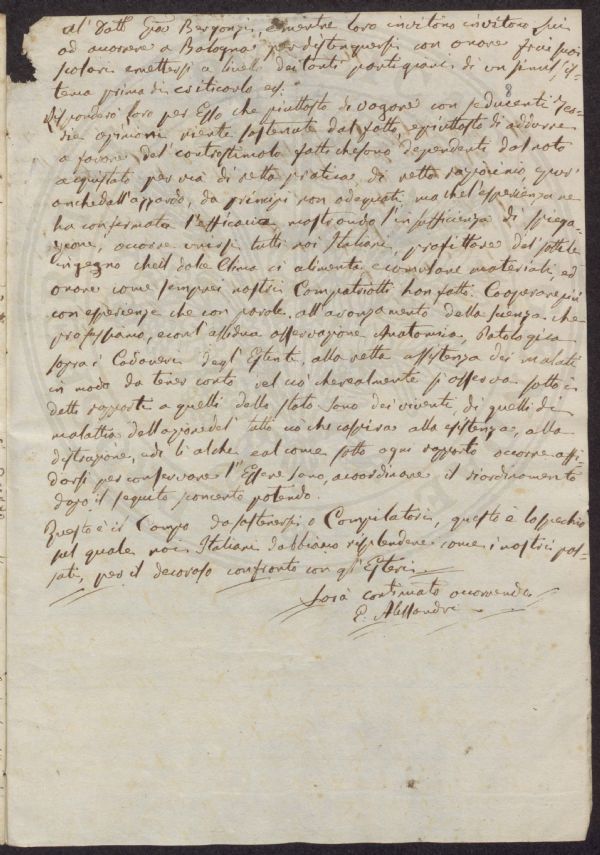 al' Dott. Gio: Bergonzi, e mentre loro invitono invitoro Lui
ad accorrere a Bologna per distinguersi con onore frai suoi
scolari e mettersi a livello dei tanti partigiani di un simil, sis-
tema prima di criticarlo ecc:
8
Risponderò loro per Esso che piuttosto di vagare con seducenti Teo-
rie opinioni niente sostenute dal fatto, e piuttosto di addurre
a favore del controstimolo fatti che sono dependenti dal noto
acquistato per via di retta pratica di retto raziocinio, e pur
anche dall'azzardo, da principi non adequati, ma che l'esperienza ne
ha confermata l'efficacia, mostrando l'insufficienza di spiega-
zione, occorre unirsi tutti noi Italiani, profittare del sottile
ingegno che il dolce Clima ci alimenta e cumulare materiali, ed
onore come sempre i nostri Compatriotti han fatto. Cooperare più
con esperienze che con parole all'avanzamento della scienza che
professiamo, e con l'assidua osservazione Anatomica, Patologica
sopra i Cadaveri degl'Estinti, alla retta assistenza dei malati
in modo da tener conto del ciò che realmente si osserva sotto i
detti rapporti a quelli dello stato sano dei viventi, di quelli di
malattia dell'azione del tutto ciò che cospira alla esistenza, alla
distruzione, di li al che ed al come sotto ogni rapporto occorre affi-
darsi per conservare l'Essere sano, accordinare il riordinamento
dopo il seguito sconcerto potendo.
Questo è il Campo da sostenersi o Compilatori, questo è lo specchio
sul quale noi Italiani dobbiamo risplendere come i nostri pas-
sati, per il decoroso confronto con gl'Esteri.
Sarà continuato occorrendo
E. Alessandri